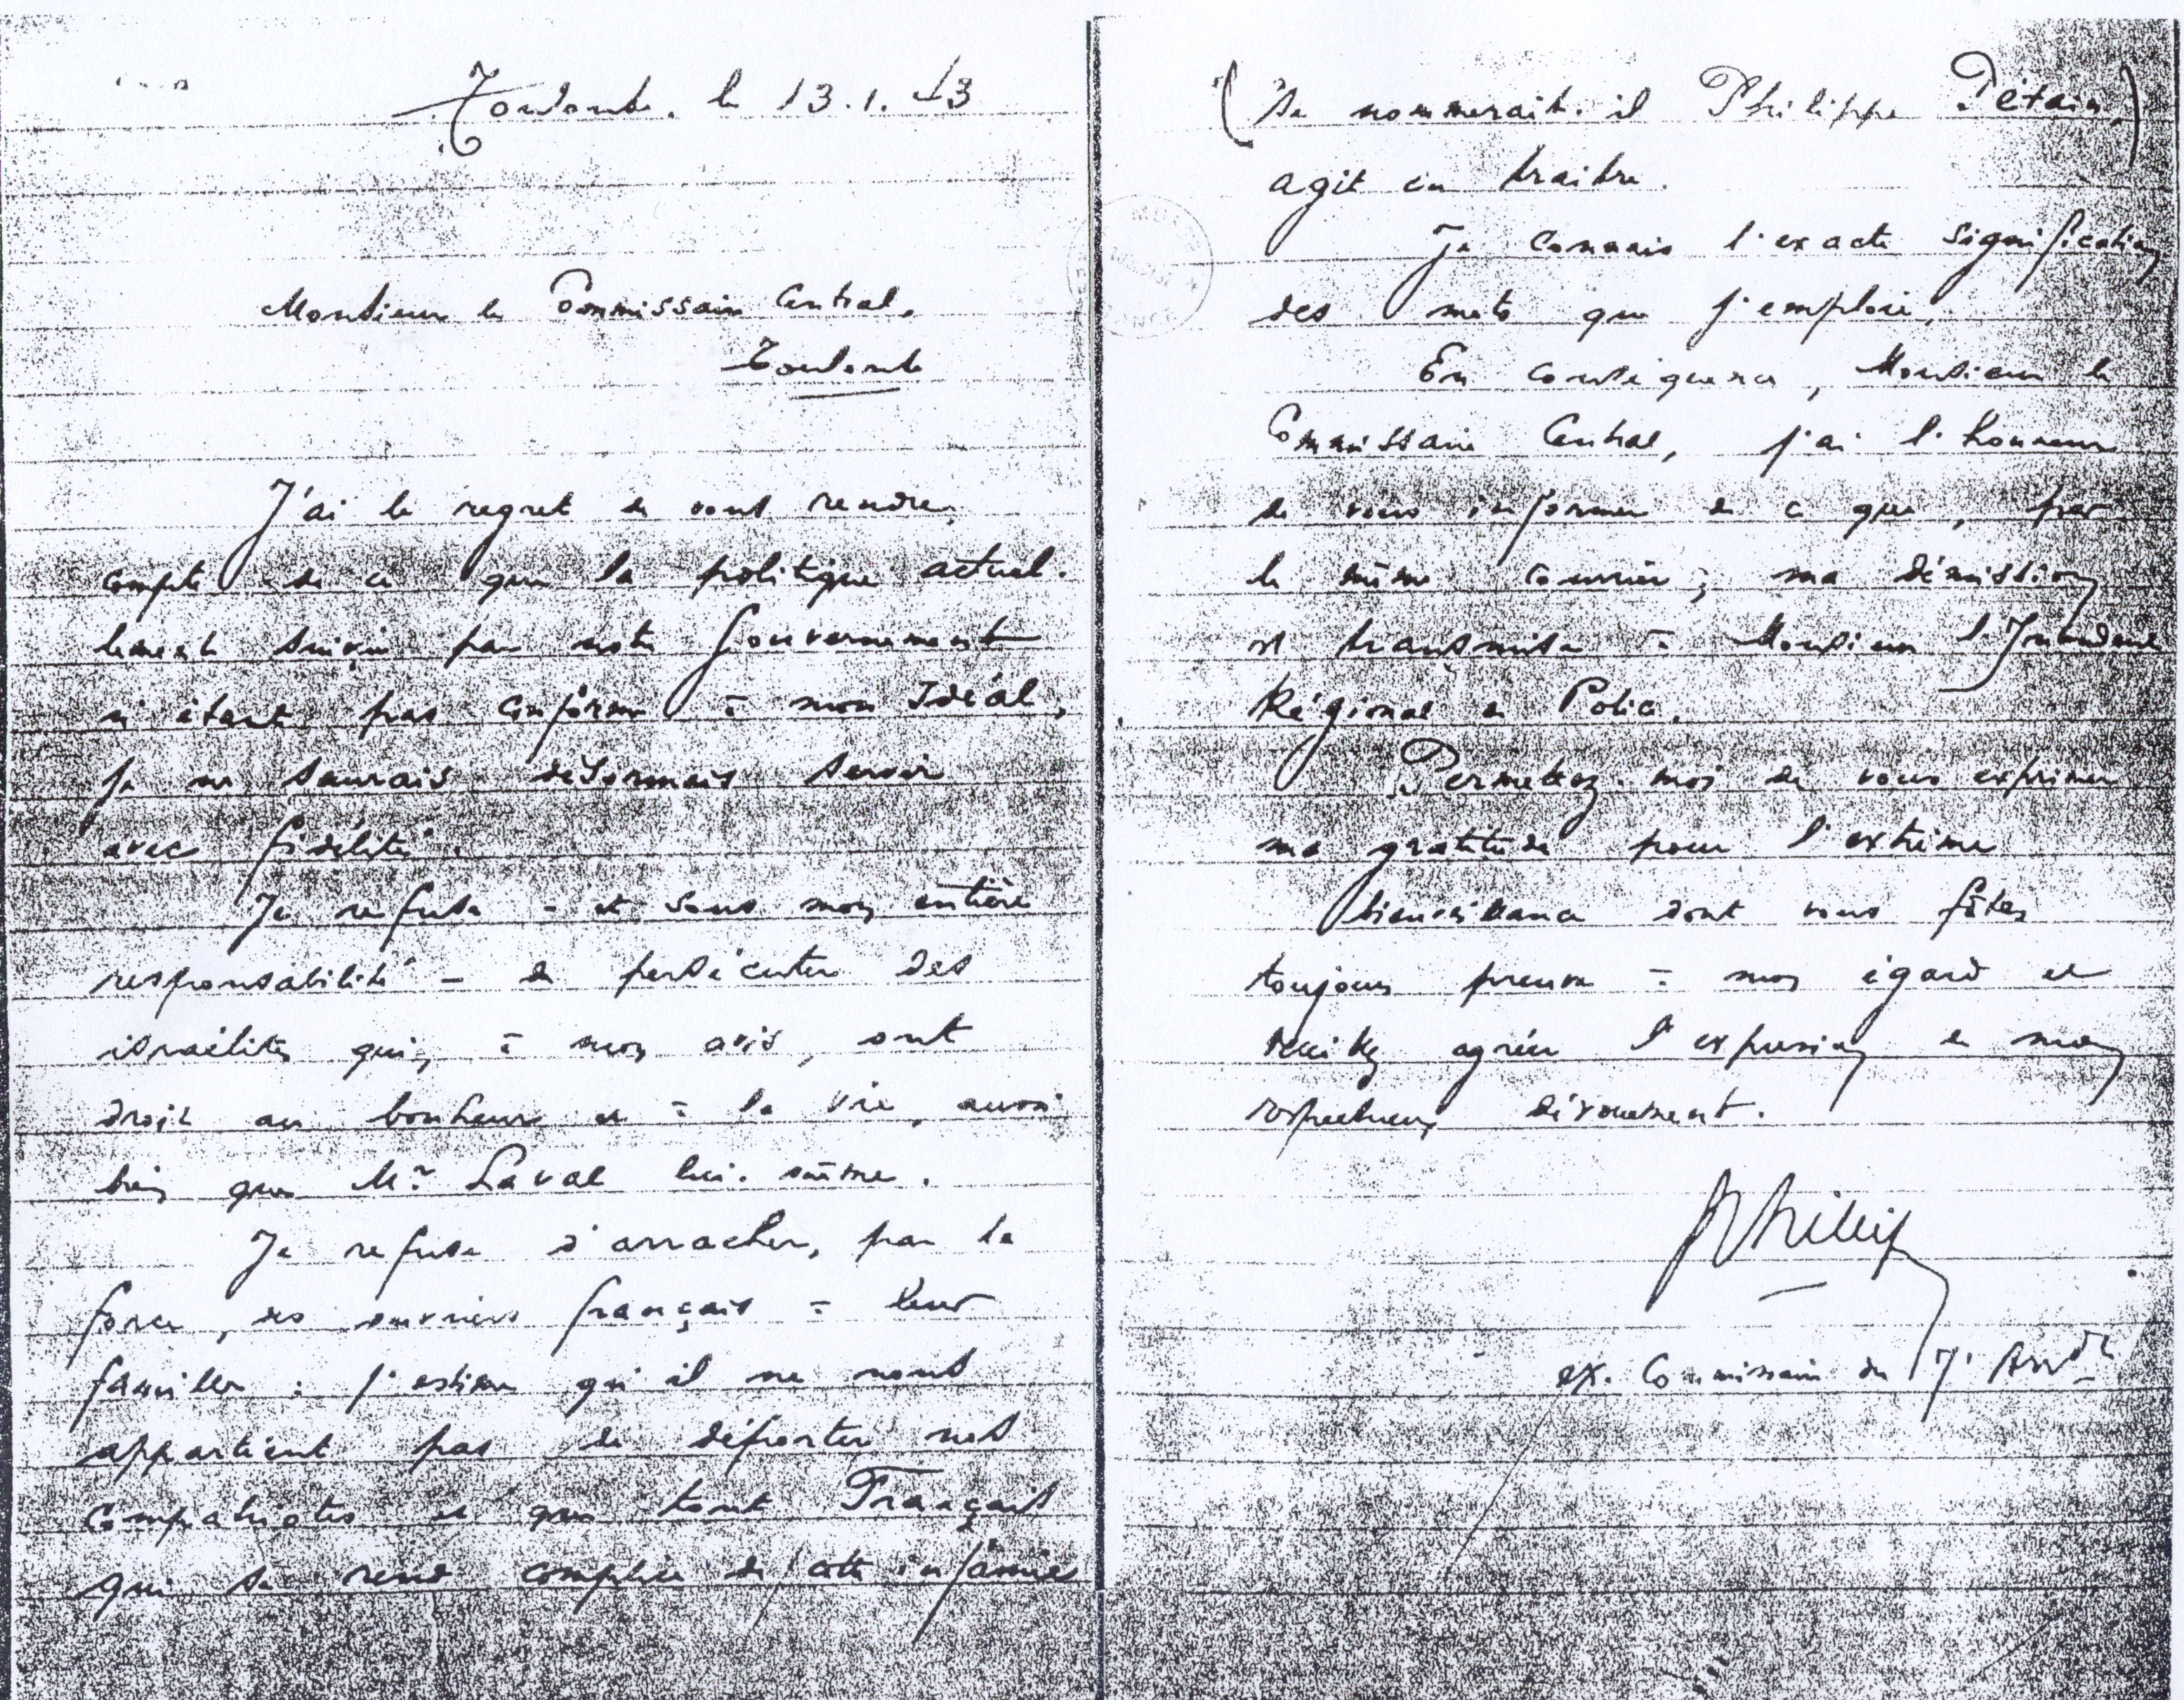 Toulouse. le 13.1.43
Monsieur le Commissaire Central.
Toulouse
J'ai le regret de vous rendre
compte de ce que la politique actuel-
lement suivie par notre Gouvernement
n'étant pas conforme à mon Idéal,
je ne saurais désormais servir
avec fidélité.
Je refuse - et sous mon entière
responsabilité - de persécuter des
israélites qui, à mon avis, ont
droit au bonheur et à la vie, aussi
bien que Mr Laval lui-même.
Je refuse d'arracher, par la
force, des ouvriers français à leur
famille : j'estime qu'il ne nous
appartient pas de déporter nos
compatriotes et que tout Français
qui se rend complice de cette infâmie
(se nommerait-il Philippe Pétain,)
agit en traitre.
Je connais l'exacte signification
des mots que j'emploie.
En conséquence, Monsieur le
Commissaire Central, j'ai l'honneur
de vous informer de ce que, par
le même courrier, ma démission
est transmise à Monsieur l'Intendant
Régional de Police.
Permettez-moi de vous exprimer
ma gratitude pour l'extrême
bienveillance dont vous fîtes
toujours preuve à mon égard et
veuillez agréer l'expression de mon
respectueux dévouement.
Philip
ex-Commissaire du 7e Arrdt